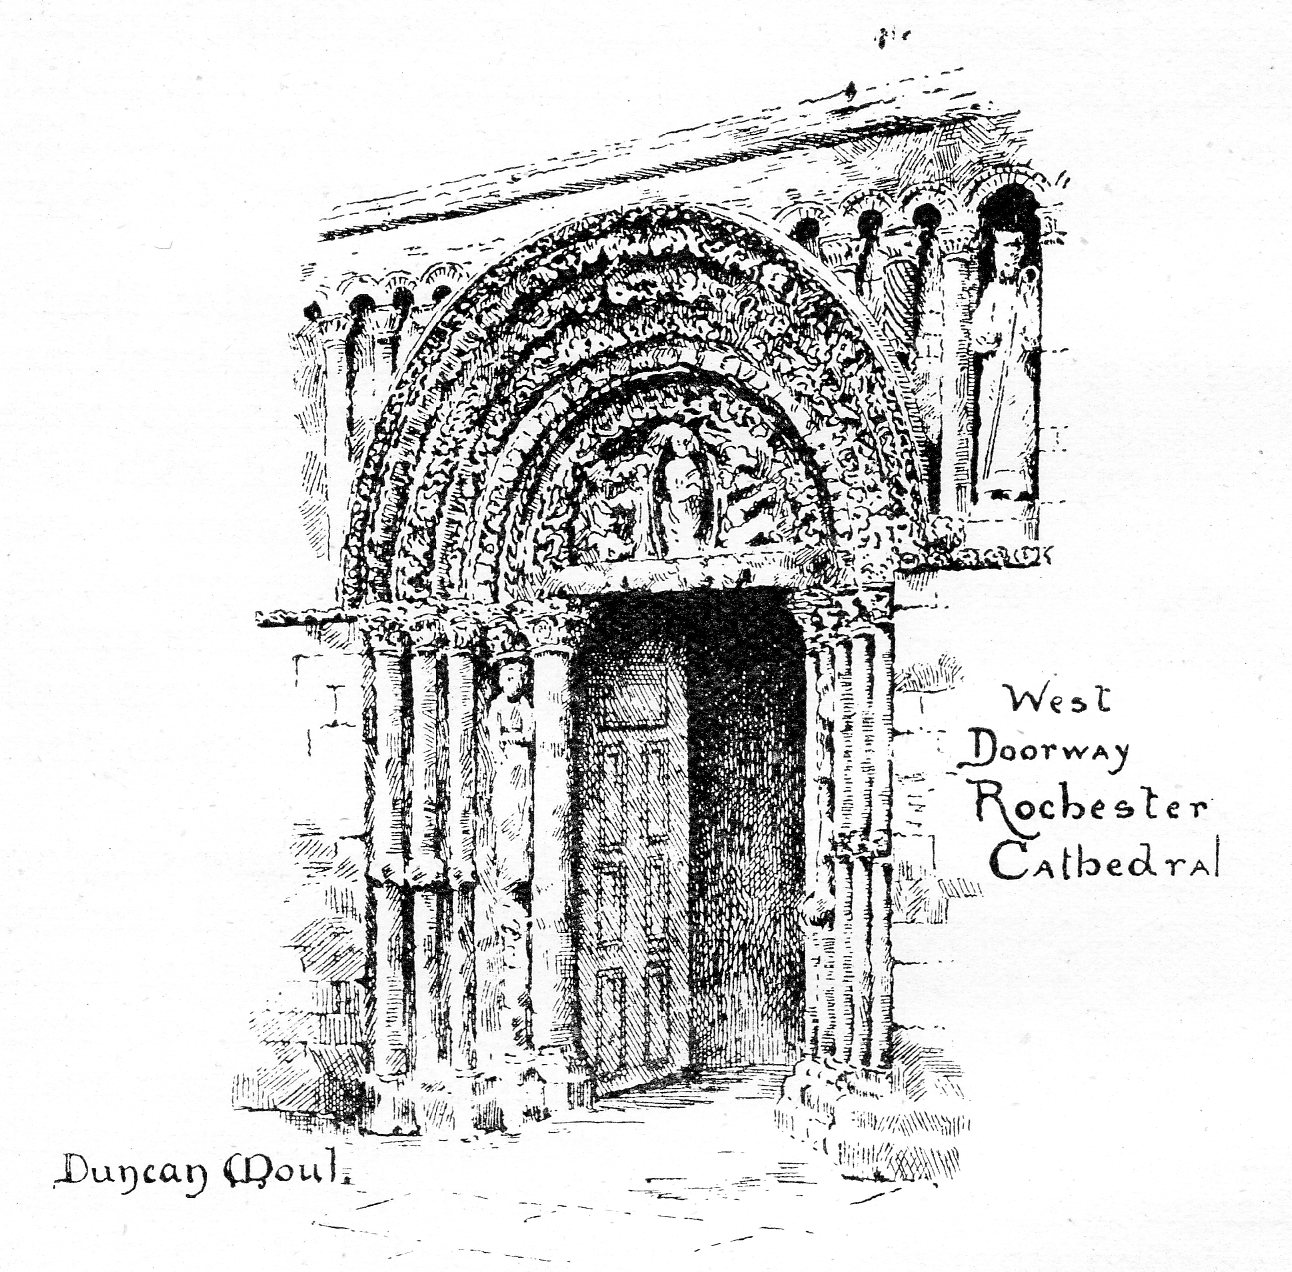 West
Doorway
Rochester
Cathedral
Duncan Moul.